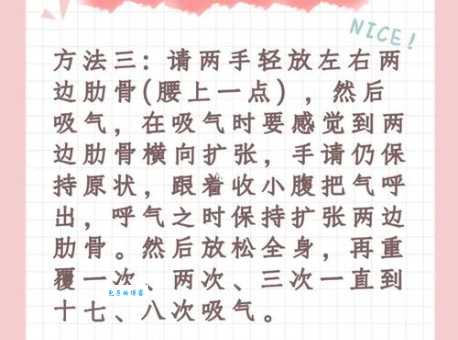 NICE!
方法三：请两手轻放左右两
边肋骨(腰上一点），然后
吸气，在吸气时要感觉到两
边肋骨横向扩张，手请仍保
持原状，跟着收小腹把气呼
出，呼气之时保持扩张两边
肋骨。然后放松全身，再重
覆一次、两次、三次一直到
十七、八次吸气。